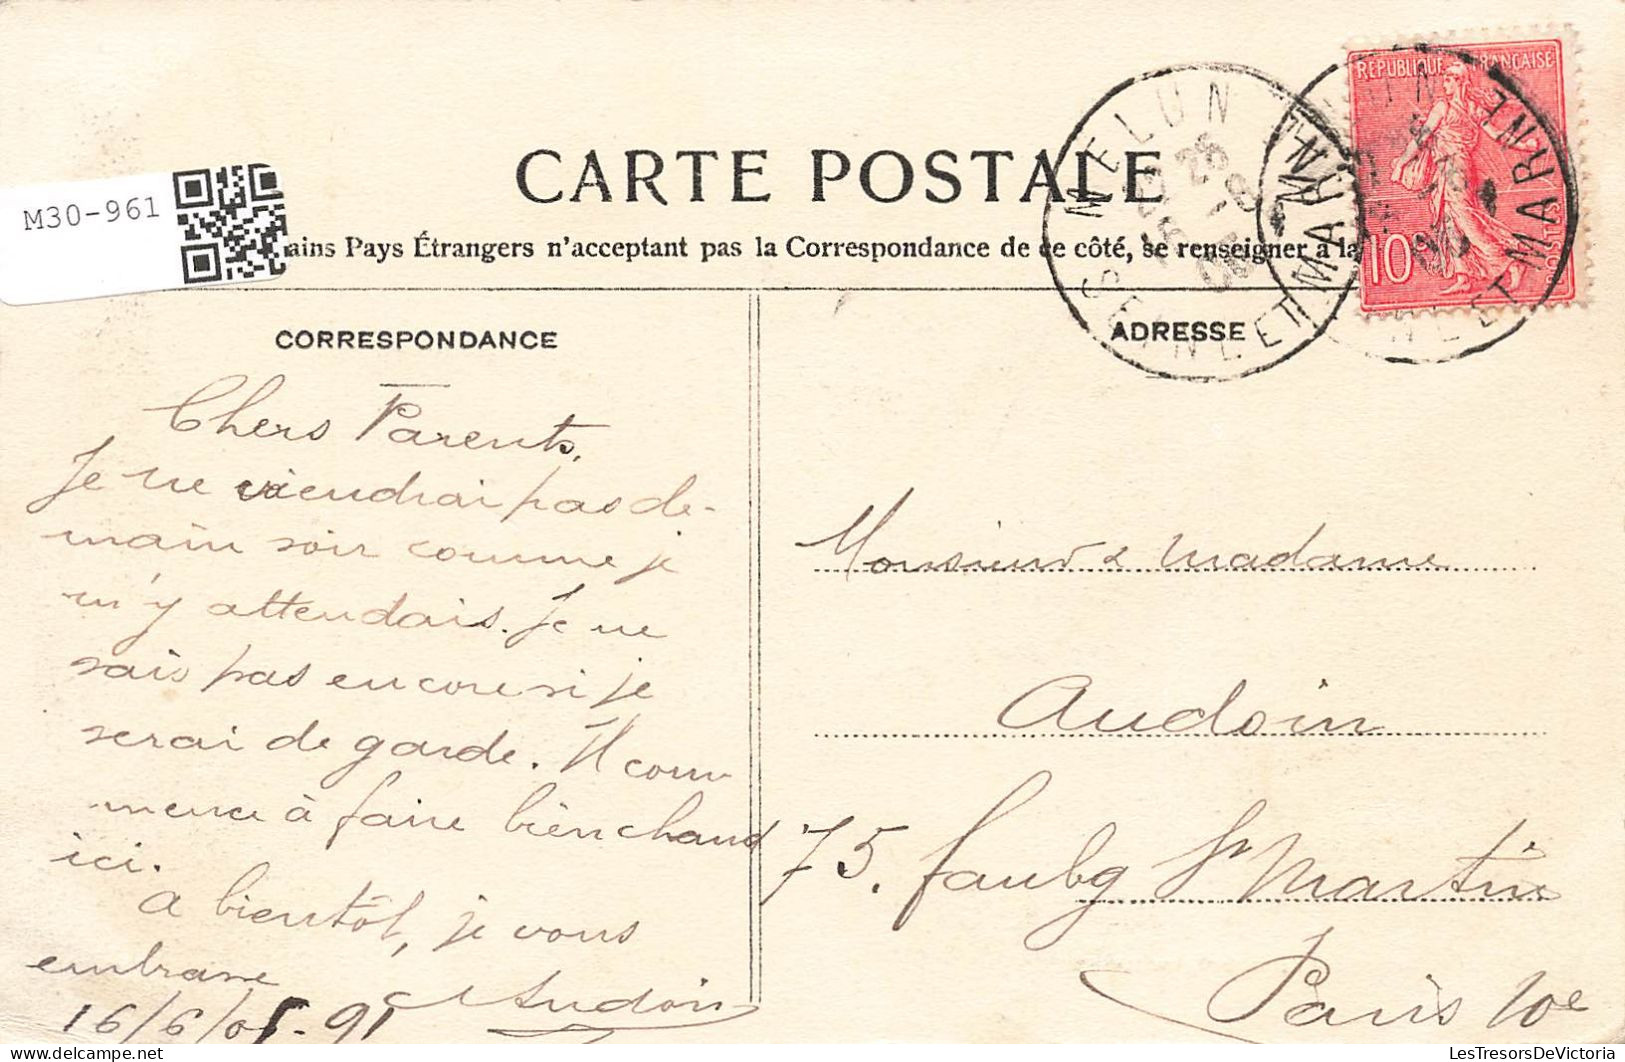 CARTE POSTALE
M30-961
ains Pays Étrangers n'acceptant pas la Correspondance de ce côté, se renseigner à la
RÉPUBLIQUE FRANÇAISE
10
MELUN
SEINE ET MARNE
CORRESPONDANCE
Chers Parents,
Je ne viendrai pas de-
main soir comme je
m'y attendais. Je ne
sais pas encore si je
serai de garde. Il com-
mence à faire bien chaud
ici.
A bientôt, je vous
embrasse
Audoin
16/6/05 - 9h
ADRESSE
Monsieur & Madame
Audoin
75, faubg St Martin
Paris 10e
LesTresorsDeVictoria